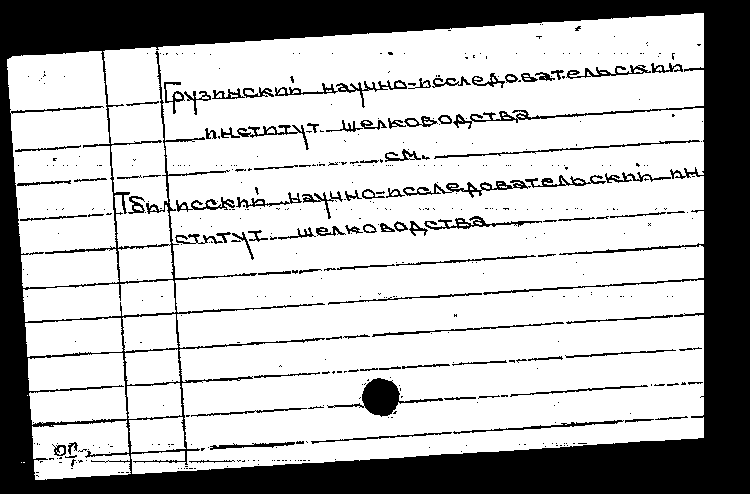 Грузинский научно-исследовательский
институт шелководства
см.
Тбилисский научно-исследовательский ин-
ститут шелководства